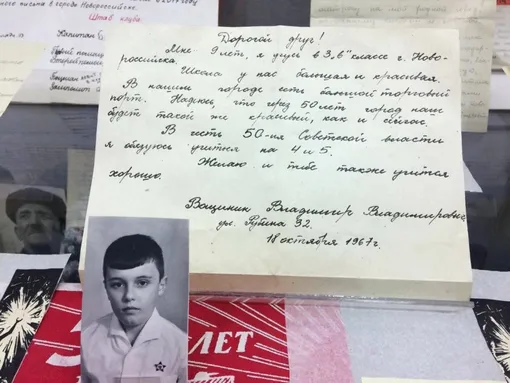 письма в городе Новороссийске.
Штаб клуба
Капитан
Дорогой друг!
Мне 9 лет, я учусь в 3 "в" классе г. Ново-
российска.
Школа у нас большая и красивая.
В нашем городе есть большой торговый
порт. Надеюсь, что через 50 лет город наш
будет такой же красивый, как и сейчас.
В честь 50-ия Советской власти
я обязуюсь учится на 4 и 5.
Желаю и тебе также учится
хорошо.
Вощинин Владимир Владимирович
ул. Рубина 32.
18 октября 1967 г.
ЛЕТ